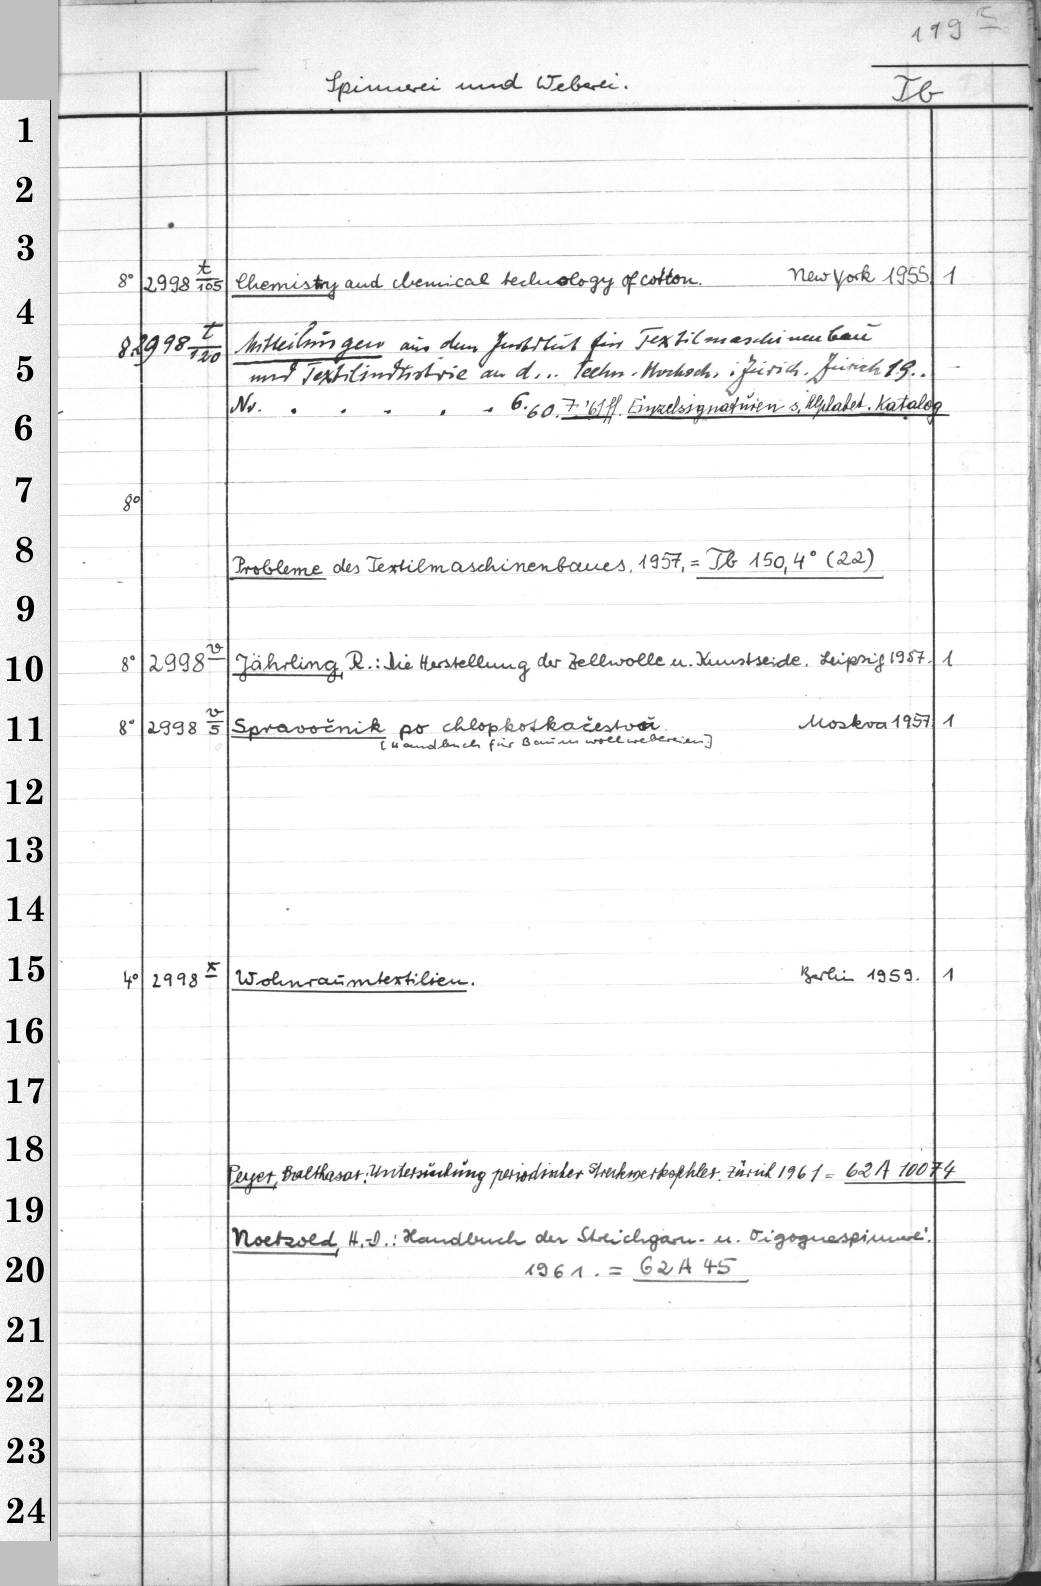 119
Spinnerei und Weberei.
Tb
1
2
3
8° 2998 t/105 Chemistry and chemical technology of cotton. New York 1955 1
4
8° 2998 t/120 Mitteilungen aus dem Institut für Textilmaschinenbau
5
und Textilindustrie an d... Techn. Hochsch. i. Zürich. Zürich 19..
Nr. . . . . . 6.60. Z '61ff. Einzelsignaturen s. Alphabet. Katalog
6
7
8°
8
Probleme des Textilmaschinenbaues. 1957, = Tb 150,4° (22)
9
10
8° 2998 v Jährling, R.: Die Herstellung der Zellwolle u. Kunstseide. Leipzig 1957. 1
11
8° 2998 v/5 Spravočnik po chlopkotkačestvu. Moskva 1957 1
[Handbuch für Baumwollwebereien]
12
13
14
15
4° 2998 x Wohnraumtextilien. Berlin 1959. 1
16
17
18
Peyer, Balthasar: Untersuchung periodischer Streckwerksfehler. Zürich 1961 = 62 A 10074
19
Noetzold, H.-D.: Handbuch der Streichgarn- u. Vigognespinnerei.
20
1961. = 62 A 45
21
22
23
24